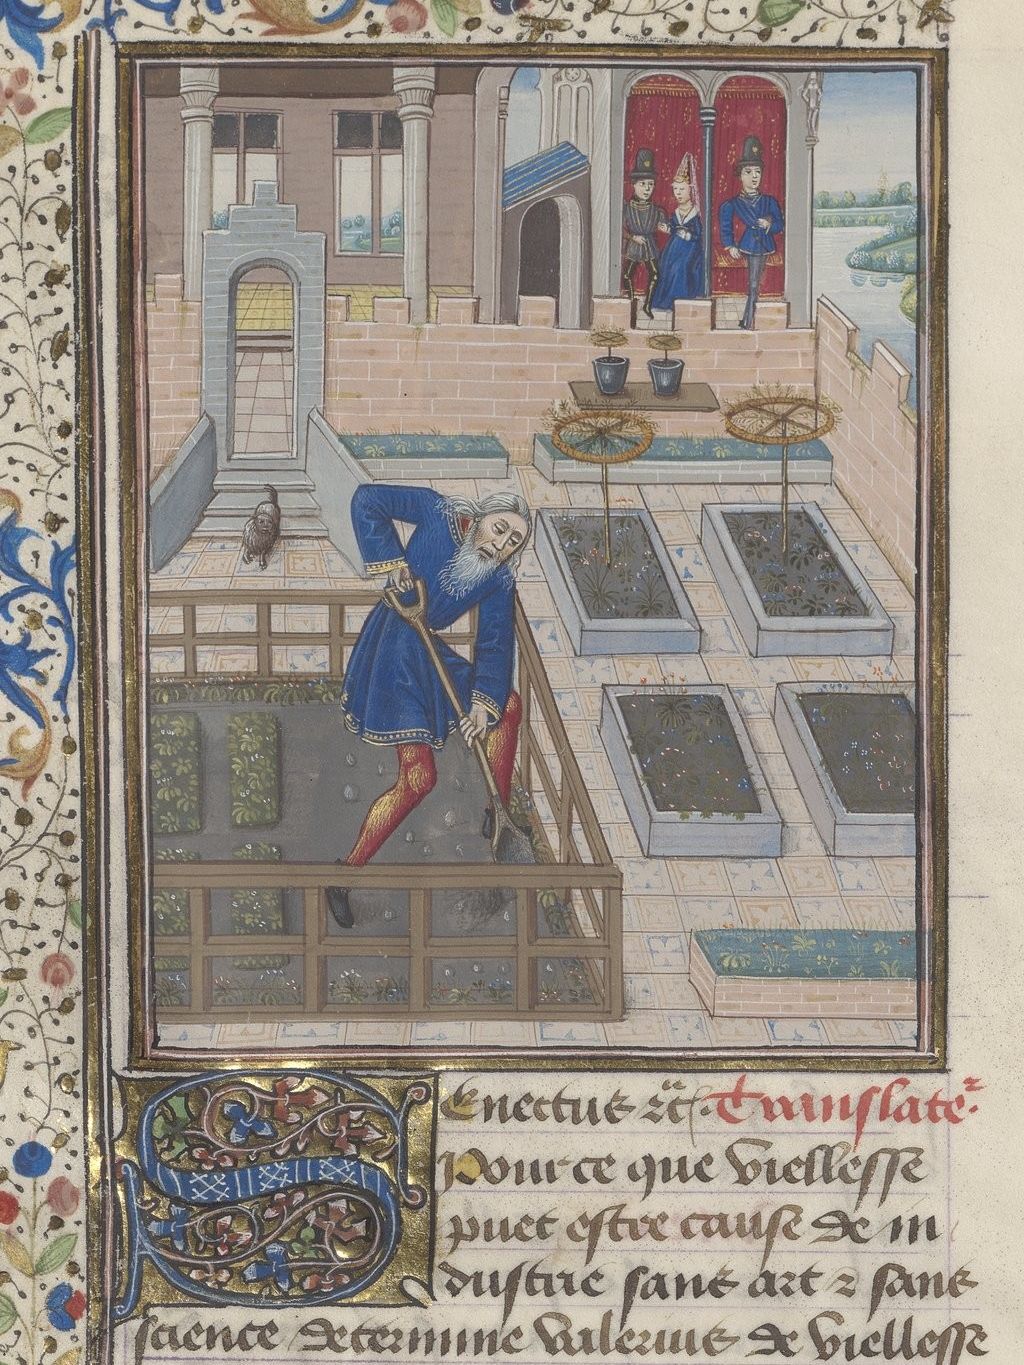 Senectus &c̃. Translateʳ.
Pour ce que viellesse
puet estre cause de in
dustrie sans art ⁊ sans
science determine valerius de viellesse